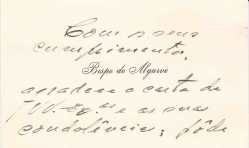 Com os seus
cumprimentos,
Bispo do Algarve
agradece a carta de
V. Ex.ª e as suas
condolências; pôde